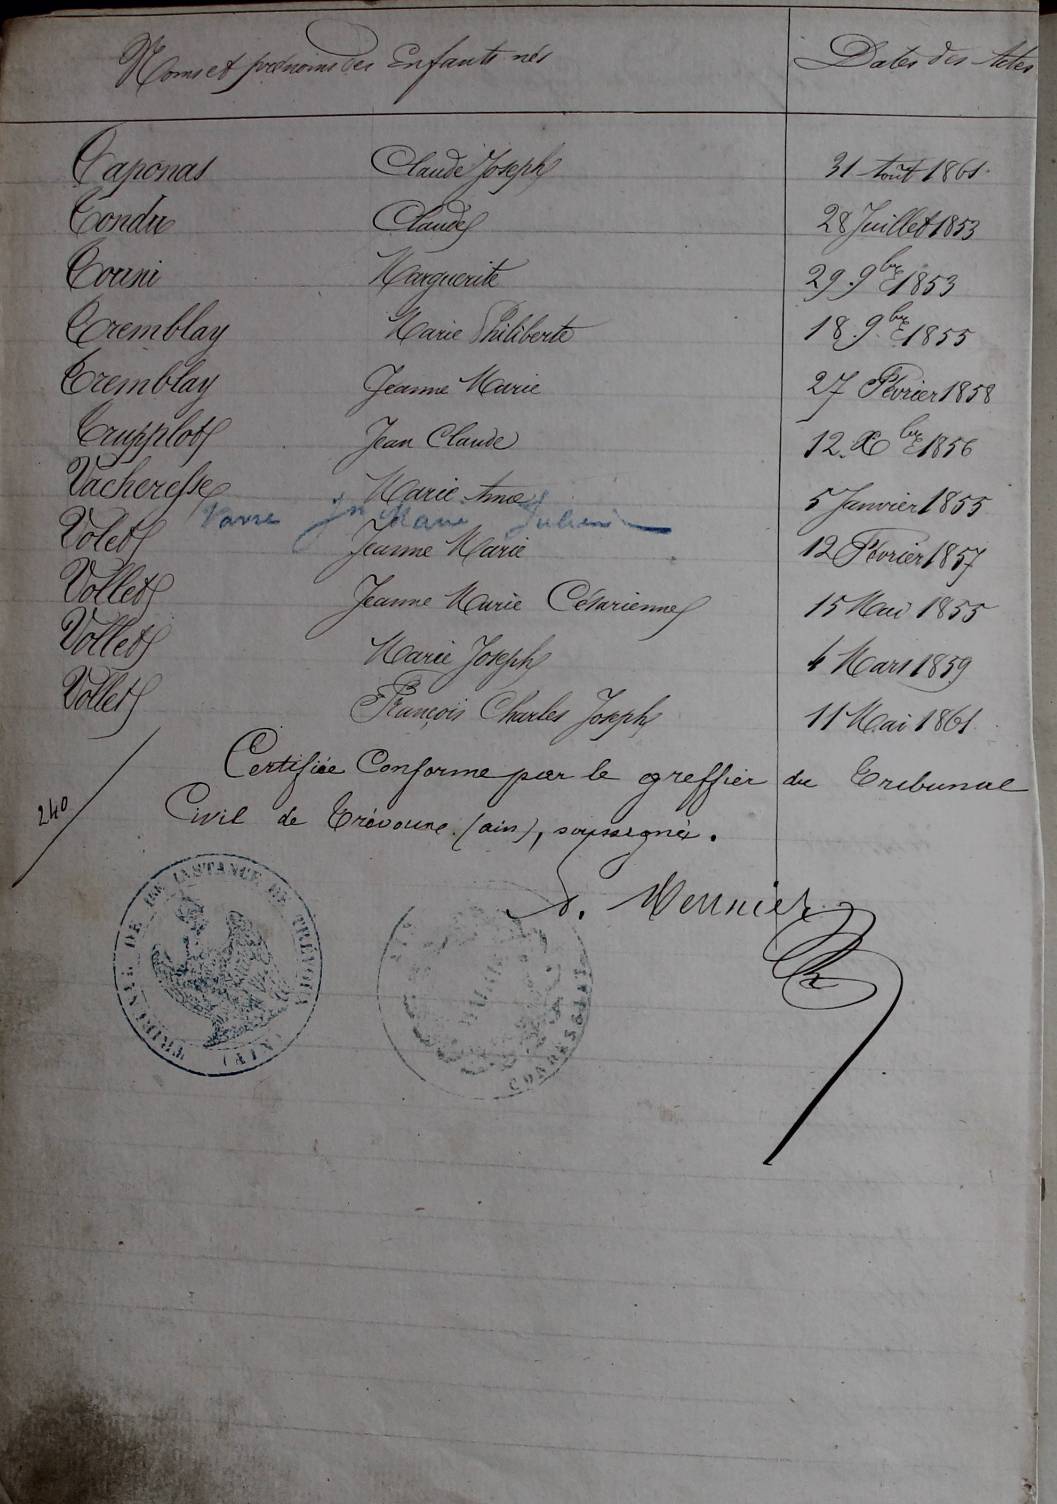 Noms et prénoms des Enfants nés Dates des Actes
Taponas Claude Joseph 31 Août 1861.
Tondu Claude 28 Juillet 1853
Marguerite 29. 9bre 1853
Tremblay Marie Philiberte 18. 9bre 1855
Tremblay Jeanne Marie 27 Février 1858
Trupplot Jean Claude 12. Xbre 1856
Vacheresse Marie Anne 5 Janvier 1855
Jn Marie
Volet Jeanne Marie 12 Février 1857
Vollet Jeanne Marie Césarienne 15 Mai 1855
Vollet Marie Joseph 4 Mars 1859
Vollet François Charles Joseph 11 Mai 1861
Certifiée Conforme par le greffier du Tribunal
240
Civil de Trévoux (ain), soussigné.
Meunier
TRIBUNAL DE 1RE INSTANCE DE TRÉVOUX (AIN)